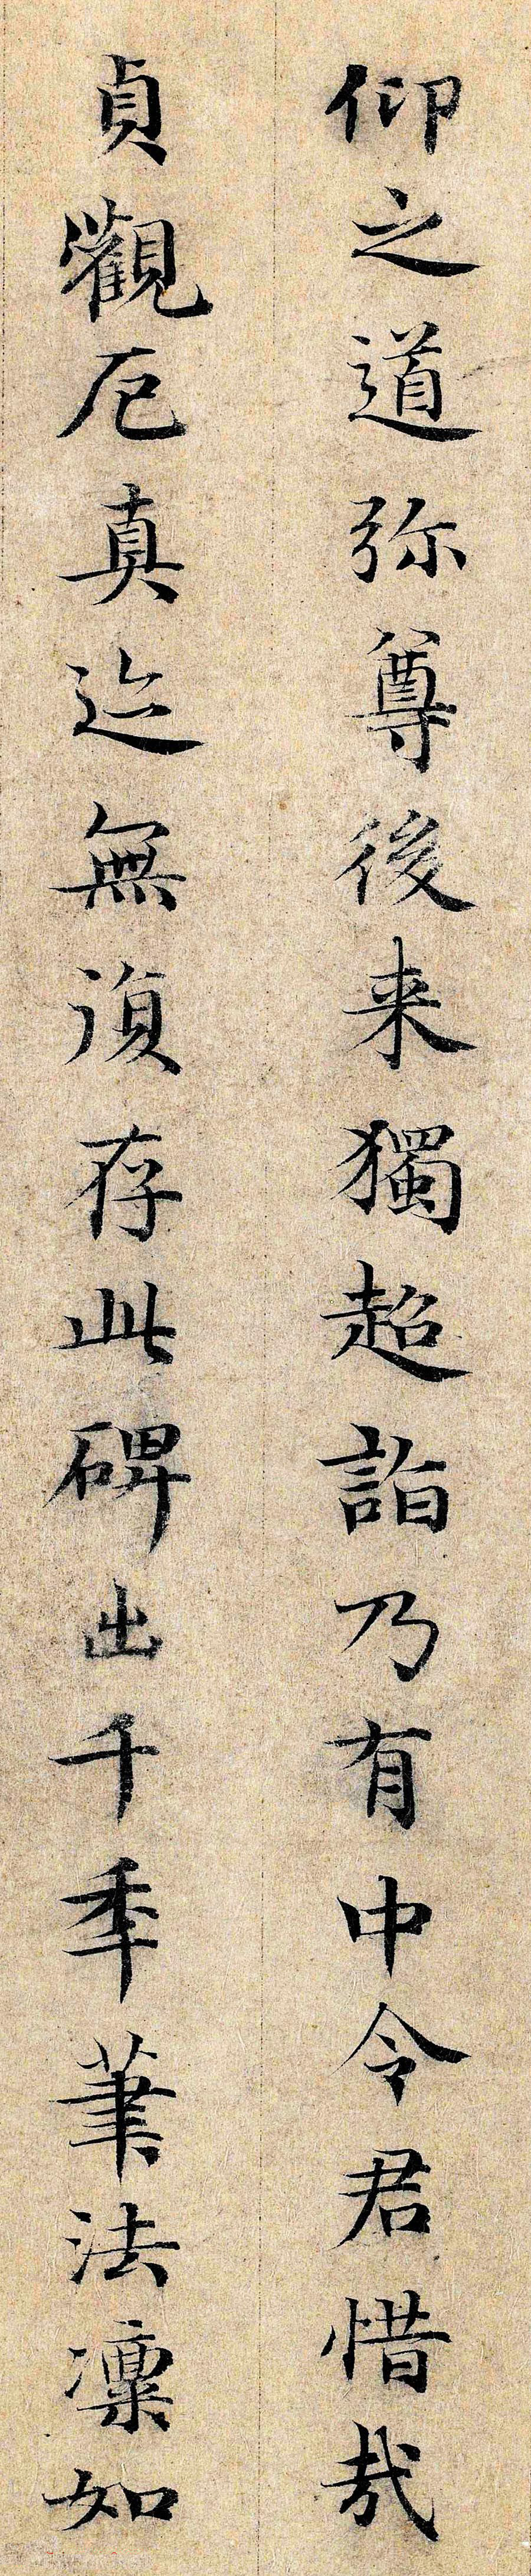 仰之道弥尊後来獨超詣乃有中令君惜哉
貞觀厄真迹無復存此碑出千季筆法凛如